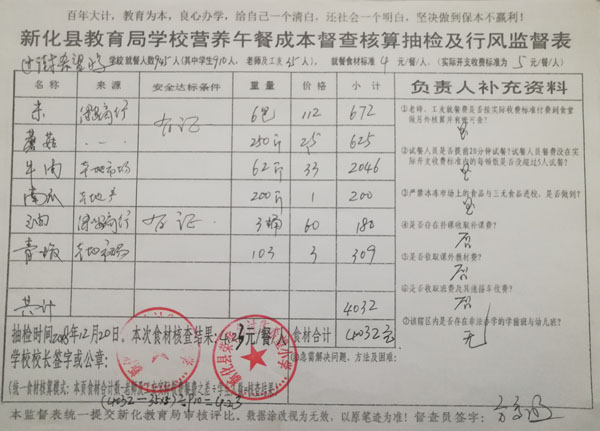 百年大计，教育为本，良心办学，给自己一个清白，还社会一个明白，坚决做到保本不赢利！
新化县教育局学校营养午餐成本督查核算抽检及行风监督表
希望 学校 就餐人数945人(其中学生910人，老师及工友35人)，就餐食材标准4元/餐/人，(实际开支收费标准为5元/餐/人)
名称 来源 安全达标条件 重量 价格 小计 负责人补充资料
米 商行 有证 6包 112 672
蘑菇 〃 250斤 2.5 625
牛肉 本地市场 62斤 33 2046
南瓜 本地产 200斤 1 200
油 商行 有证 3桶 60 180
青椒 本地市场 103 3 309
共计 4032
①老师、工友就餐费是否按实际收费标准付费到食堂做另外核算并有账可查？
是
②试餐人员是否提前20分钟试餐？试餐人员餐费没在实际开支收费标准内的每顿饭是否没超过5人试餐？
是
③严禁冰冻市场上的食品与三无食品进校，是否做到？
是
④是否存在补课收取补课费？
否
⑤是否收取课外教材费？
否
⑥是否收取班费及其通报车收费？
否
⑦该辖区内是否存在非法办学的学前班与幼儿班？
无
抽检时间2018年12月20日。本次食材核查结果：4.23元/餐/人 食材合计 4032元
学校校长签字或公章： 急需解决问题、方法及困难：
(4032-35×5)÷910=4.23
本监督表统一提交新化教育局审核评比。数据涂改视为无效，以原笔迹为准！督查员签字：